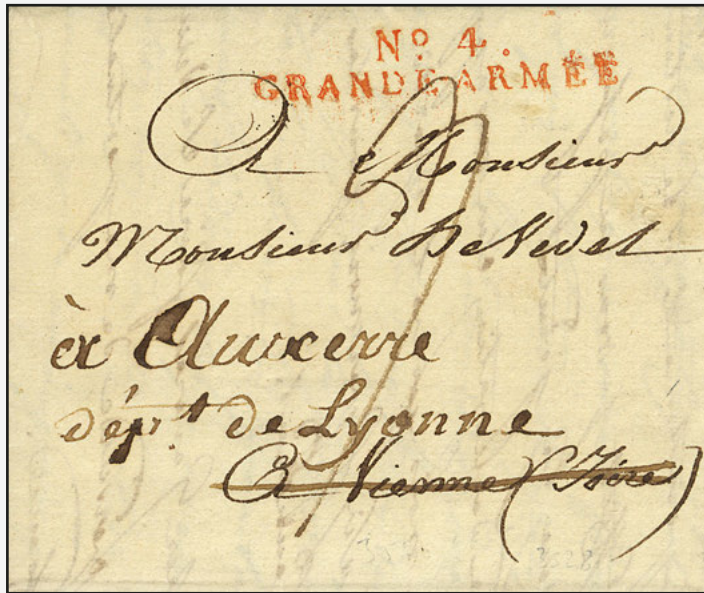 Nº 4.
GRANDE ARMÉE
A Monsieur
Monsieur De Vedel
à Auxerre
dépt de Lyonne
A Vienne (Isère)